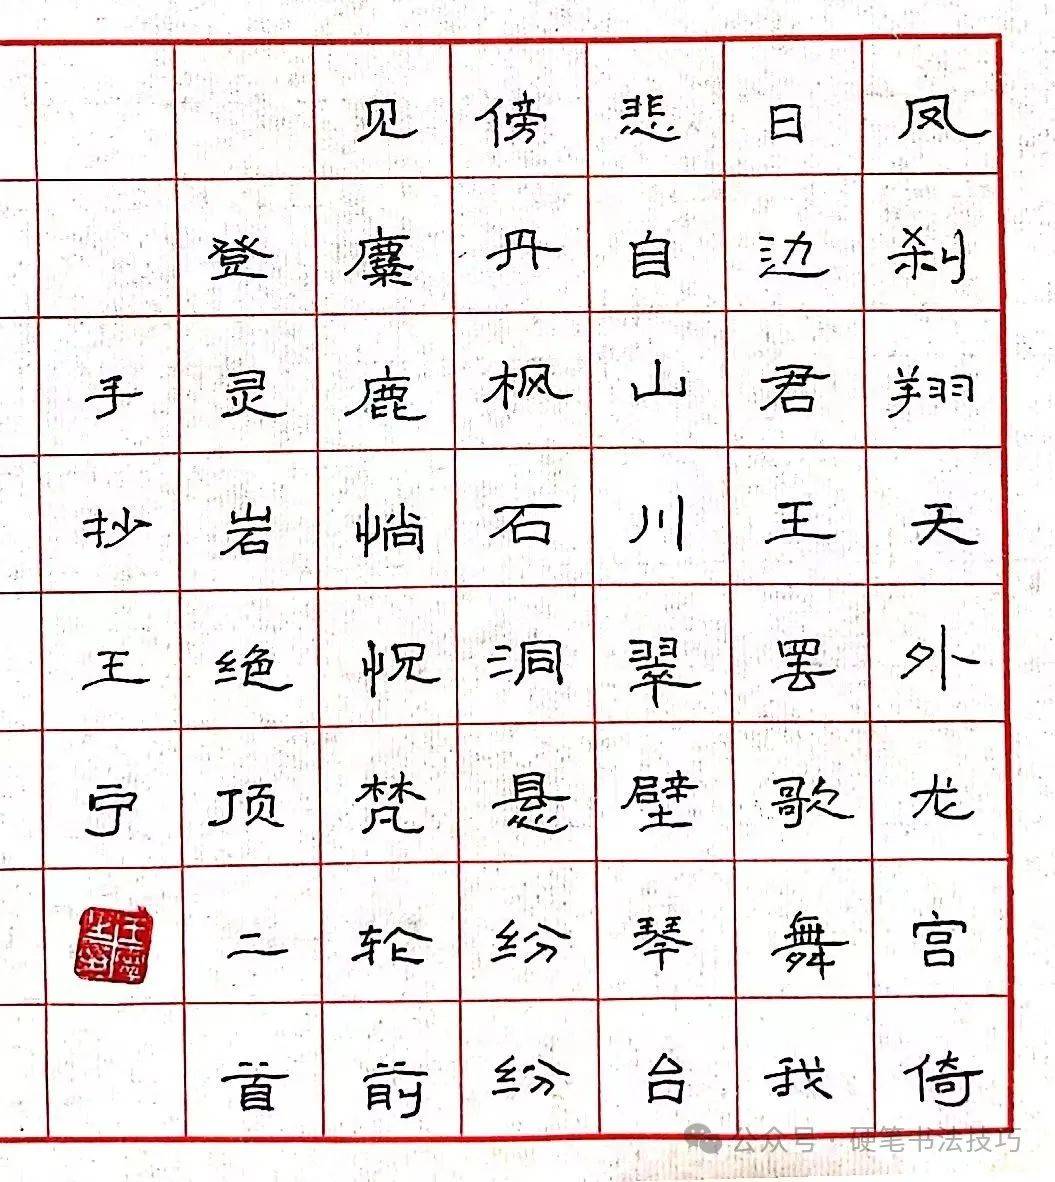 凤刹翔天外龙宫倚
日边君王罢歌舞我
悲自山川翠壁琴台
傍丹枫石洞悬纷纷
见麋鹿惝怳梵轮前
登灵岩绝顶二首
手抄王宁
公众号 · 硬笔书法技巧